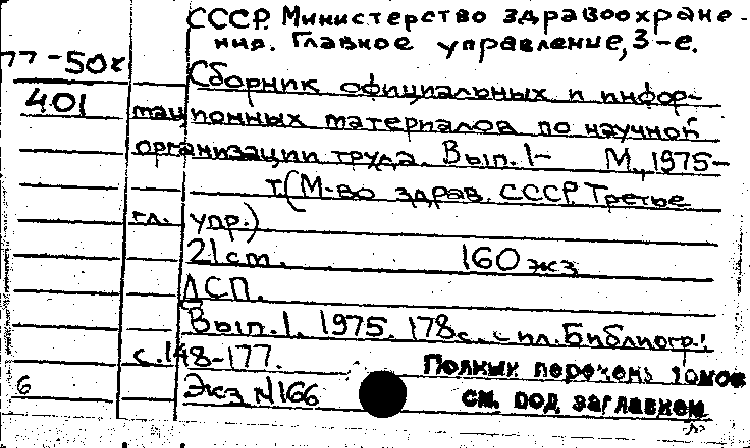 СССР. Министерство здравоохране-
ния. Главное управление, 3-е.
77-50к
Сборник официальных и инфор-
401
мационных материалов по научной
организации труда. Вып. 1- М., 1975-
т. (М-во здрав. СССР. Третье
гл. упр.)
21 см. 160 экз
ДСП.
Вып. 1. 1975. 178 с. с ил. Библиогр.:
с. 148-177.
Полный перечень томов
6
Экз №166
см. под заглавием